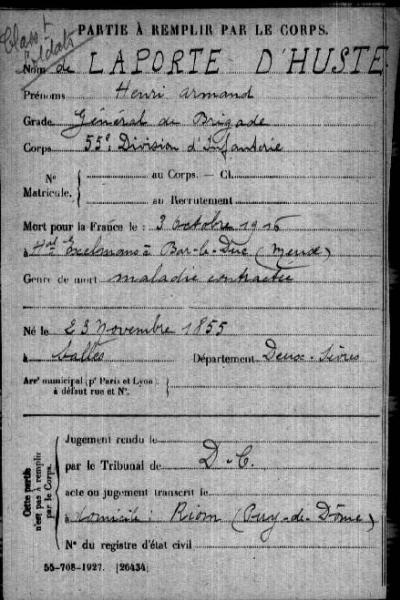 Classt
soldats
PARTIE À REMPLIR PAR LE CORPS.
Nom de LAPORTE D'HUSTE
Prénoms Henri Armand
Grade Général de Brigade
Corps 55e Division d'Infanterie
N° Matricule. { au Corps. — Cl.
au Recrutement
Mort pour la France le : 3 octobre 1916
à Hal Exelmans à Bar-le-Duc (Meuse)
Genre de mort maladie contractée
Né le 23 Novembre 1855
à Salles Département Deux-Sèvres
Arrt municipal (pr Paris et Lyon), à défaut rue et N°. {
Cette partie n'est pas à remplir par le Corps.
Jugement rendu le
par le Tribunal de D.C.
acte ou jugement transcrit le
à domicile : Riom (Puy-de-Dôme)
N° du registre d'état civil
55-708-1927. [26434]